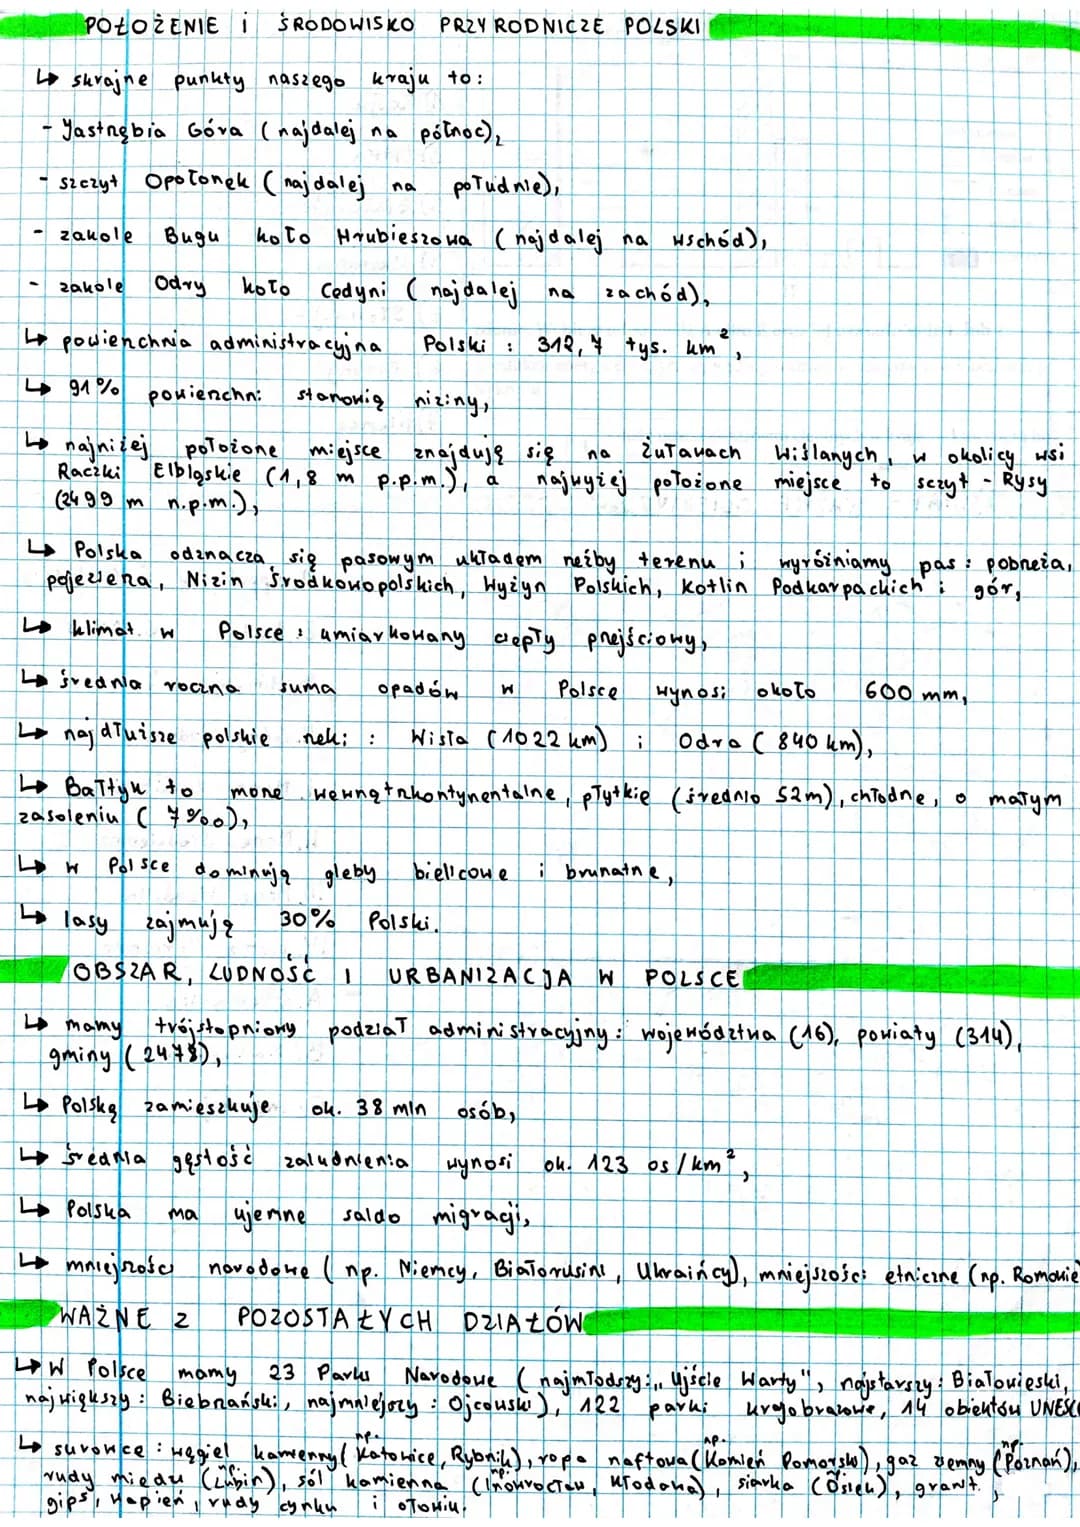 POŁOŻENIE I ŚRODOWISKO PRZYRODNICZE POLSKI
↳ skrajne punkty naszego kraju to:
- Jastrzębia Góra (najdalej na północ),
- szczyt Opołonek (najdalej na południe),
- zakole Bugu koło Hrubieszowa (najdalej na wschód),
- zakole Odry koło Cedyni (najdalej na zachód),
↳ powierzchnia administracyjna Polski : 312,7 tys. km²,
↳ 91% powierzchni stanowią niziny,
↳ najniżej położone miejsce znajdują się na Żuławach Wiślanych, w okolicy wsi
Raczki Elbląskie (1,8 m p.p.m.), a najwyżej położone miejsce to sczyt - Rysy
(2499 m n.p.m.),
↳ Polska odznacza się pasowym układem rzeźby terenu i wyróżniamy pas: pobrzeża,
pojezierza, Nizin Środkowopolskich, Wyżyn Polskich, Kotlin Podkarpackich i gór,
↳ klimat w Polsce : umiarkowany ciepły przejściowy,
↳ średnia roczna suma opadów w Polsce wynosi około 600 mm,
↳ najdłuższe polskie rzeki : Wisła (1022 km) i Odra (840 km),
↳ Bałtyk to morze wewnątrzkontynentalne, płytkie (średnio 52m), chłodne, o małym
zasoleniu (7‰),
↳ w Polsce dominują gleby bielicowe i brunatne,
↳ lasy zajmują 30% Polski.
OBSZAR, LUDNOŚĆ I URBANIZACJA W POLSCE
↳ mamy trójstopniowy podział administracyjny: województwa (16), powiaty (314),
gminy (2478),
↳ Polskę zamieszkuje ok. 38 mln osób,
↳ średnia gęstość zaludnienia wynosi ok. 123 os/km²,
↳ Polska ma ujemne saldo migracji,
↳ mniejszości narodowe (np. Niemcy, Białorusini, Ukraińcy), mniejszości etniczne (np. Romowie)
WAŻNE Z POZOSTAŁYCH DZIAŁÓW
↳ W Polsce mamy 23 Parki Narodowe (najmłodszy: „Ujście Warty", najstarszy: Białowieski,
największy: Biebrzański, najmniejszy: Ojcowski), 122 parki krajobrazowe, 14 obiektów UNESCO
↳ surowce : węgiel kamienny (np. Katowice, Rybnik), ropa naftowa (np. Kamień Pomorski), gaz ziemny (np. Poznań),
rudy miedzi (Lubin), sól kamienna (np. Inowrocław, Kłodawa), siarka (Osiek), granit,
gips, wapień, rudy cynku i ołowiu.